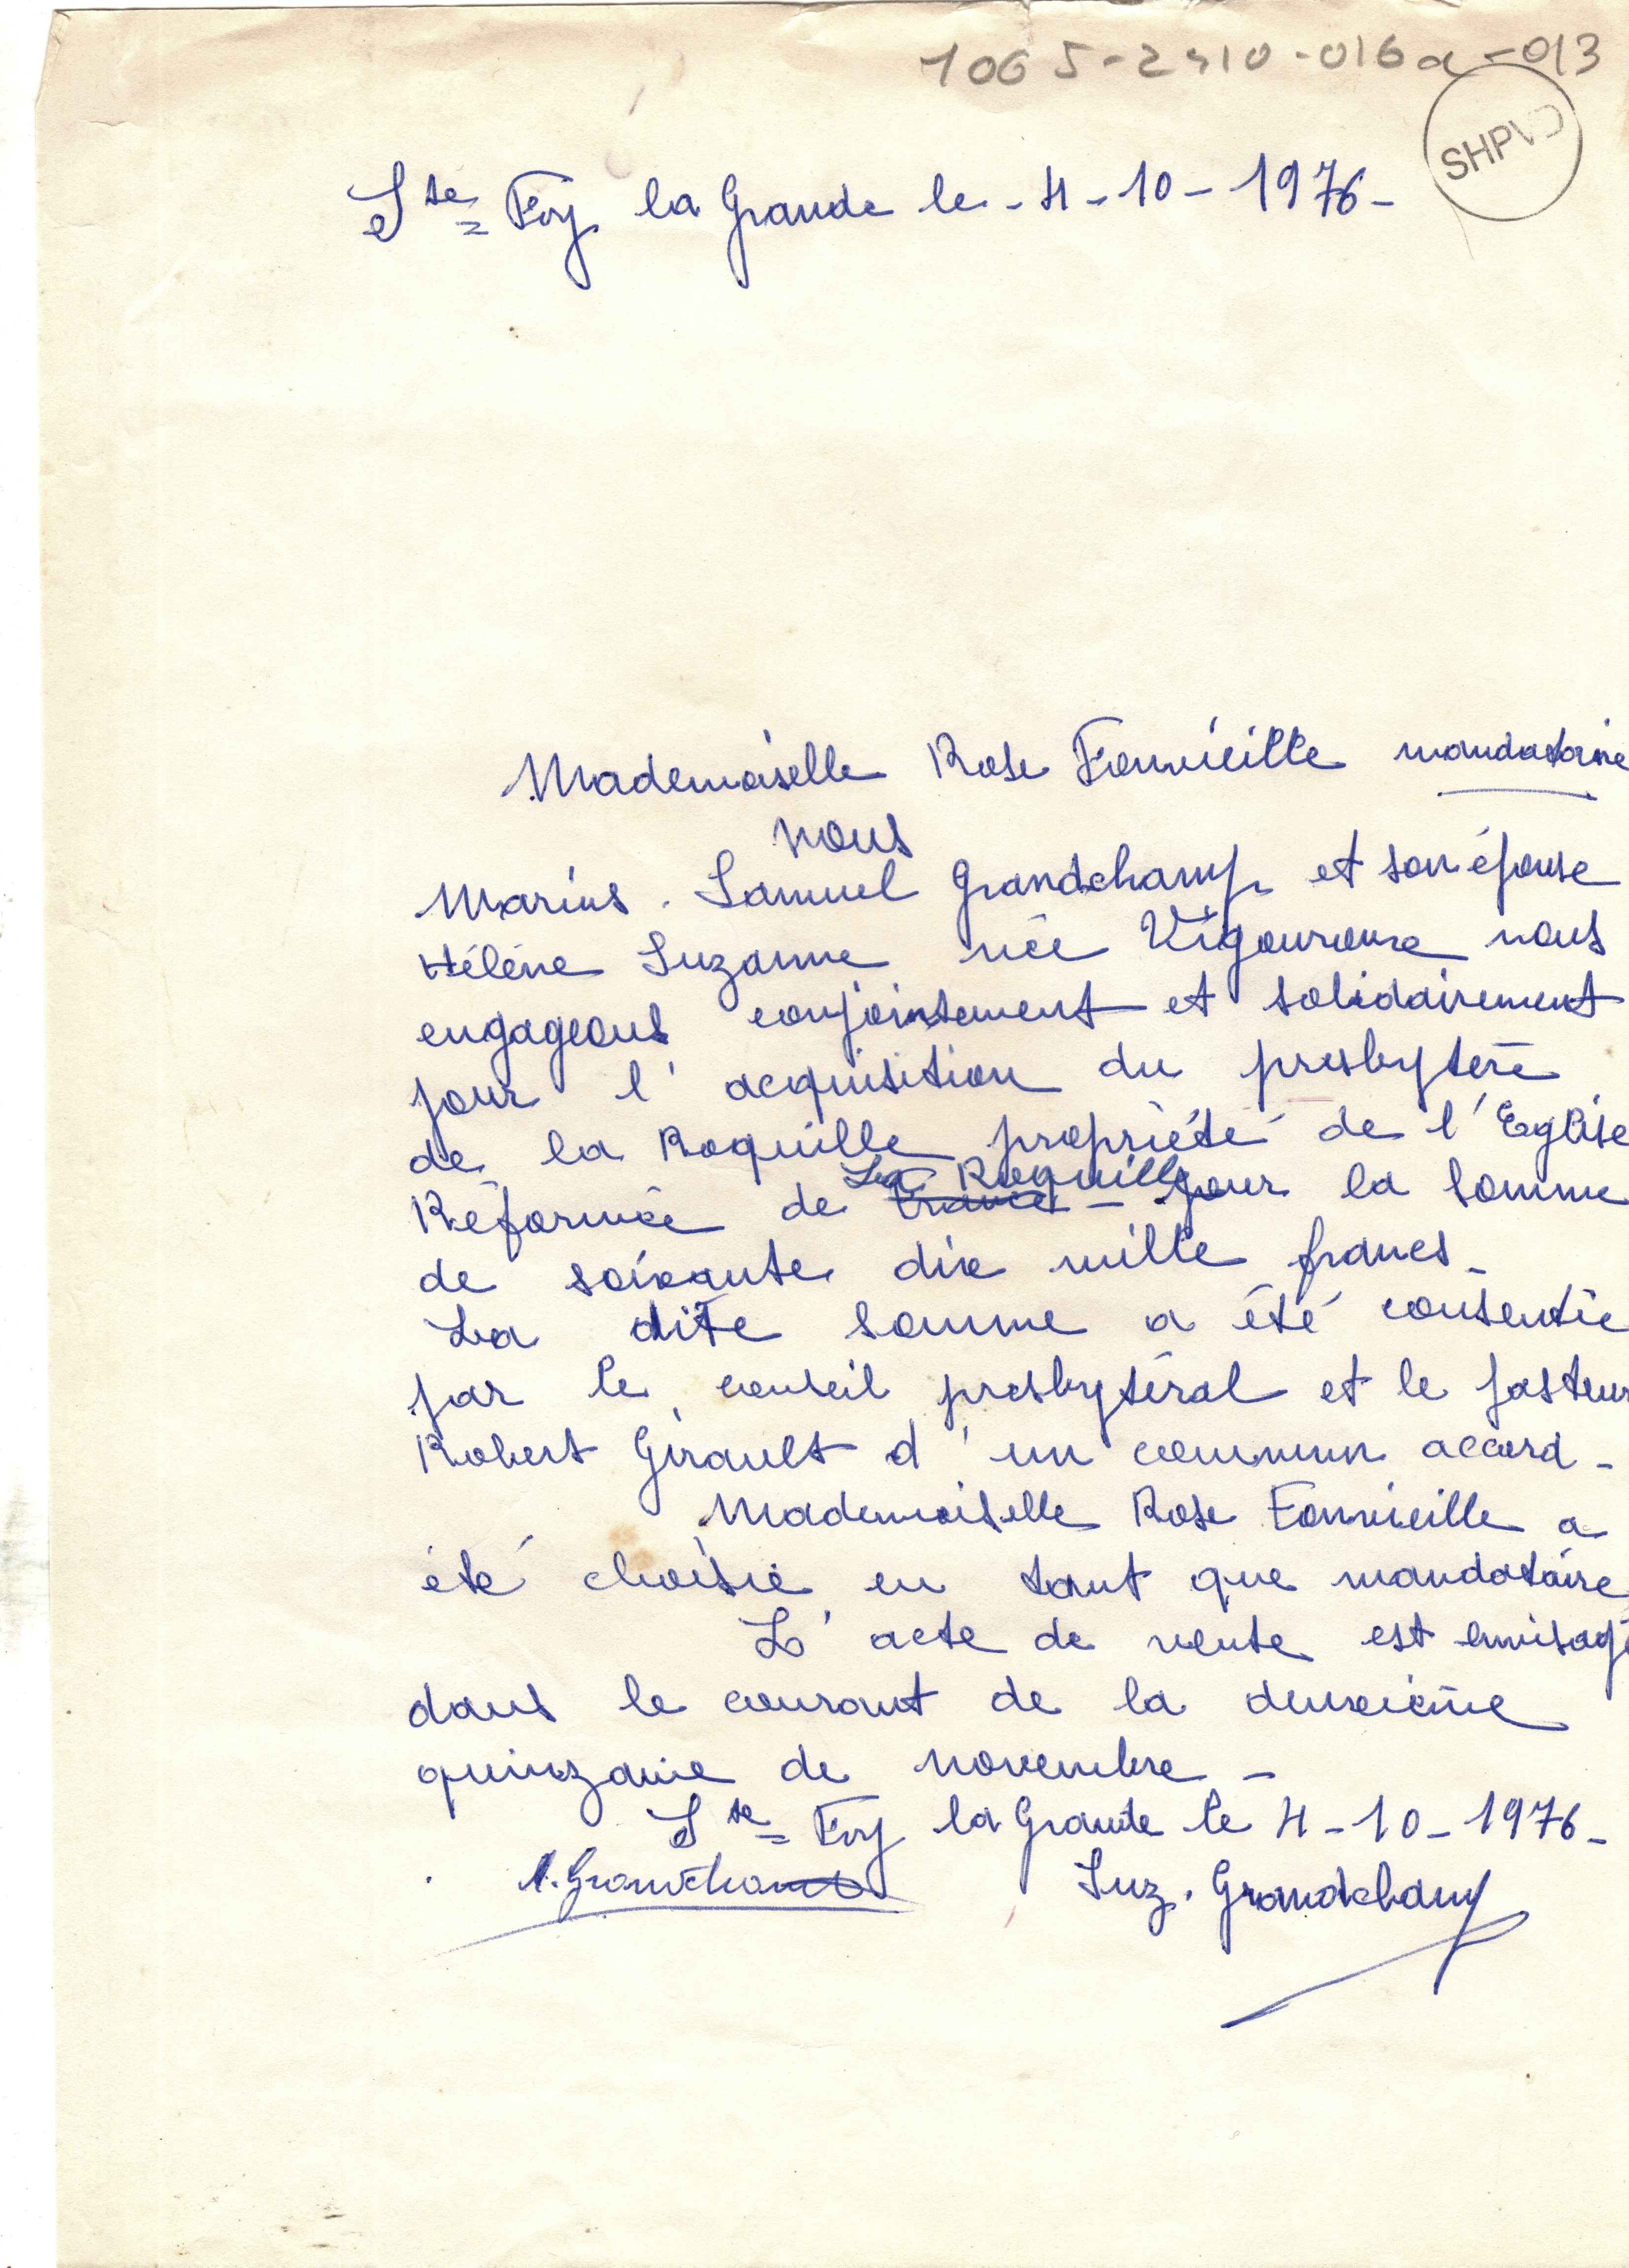 1065-2410-016a-013
SHPVD
Ste Foy la Grande le - 4 - 10 - 1976 -
Mademoiselle Rose Fonvieille mandataire
nous
Marius . Samuel Grandchamp et son épouse
Hélène Suzanne née Vigouroux nous
engageons conjointement et solidairement
pour l'acquisition du presbytère
de la Roquille propriété de l'Eglise
La Roquille
Réformée de France - pour la somme
de soixante dix mille francs -
La dite somme a été consentie
par le conseil presbytéral et le pasteur
Robert Girault d'un commun accord -
Mademoiselle Rose Fonvieille a
été choisie en tant que mandataire
L'acte de vente est envisagé
dans le courant de la deuxième
quinzaine de novembre -
Ste Foy la Grande le 4 - 10 - 1976 -
M. Grandchamp Suz. Grandchamp